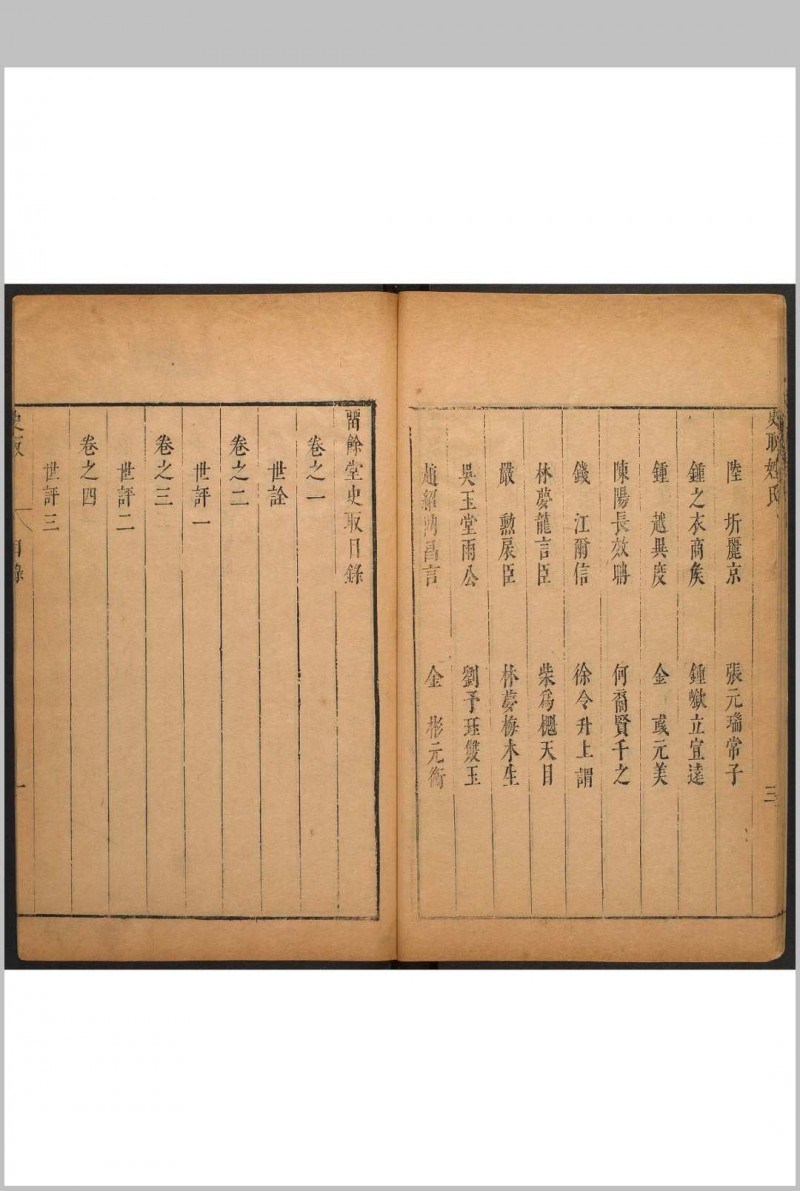 史取姓氏
三
陸 圻麗京 張元瑞常子
鍾之衣商矦 鍾嶽立宜遠
鍾 越異度 金 彧元美
陳陽長效聃 何喬賢千之
錢 江爾信 徐令升上謂
林夢龍言臣 柴爲楒天目
嚴 勲展臣 林夢梅木生
吳玉堂雨公 劉予珏雙玉
趙紹鴻言 金 彬元衡
畱餘堂史取目錄
卷之一
世詮
卷之二
世評一
卷之三
世評二
卷之四
世評三
史取
目錄
一